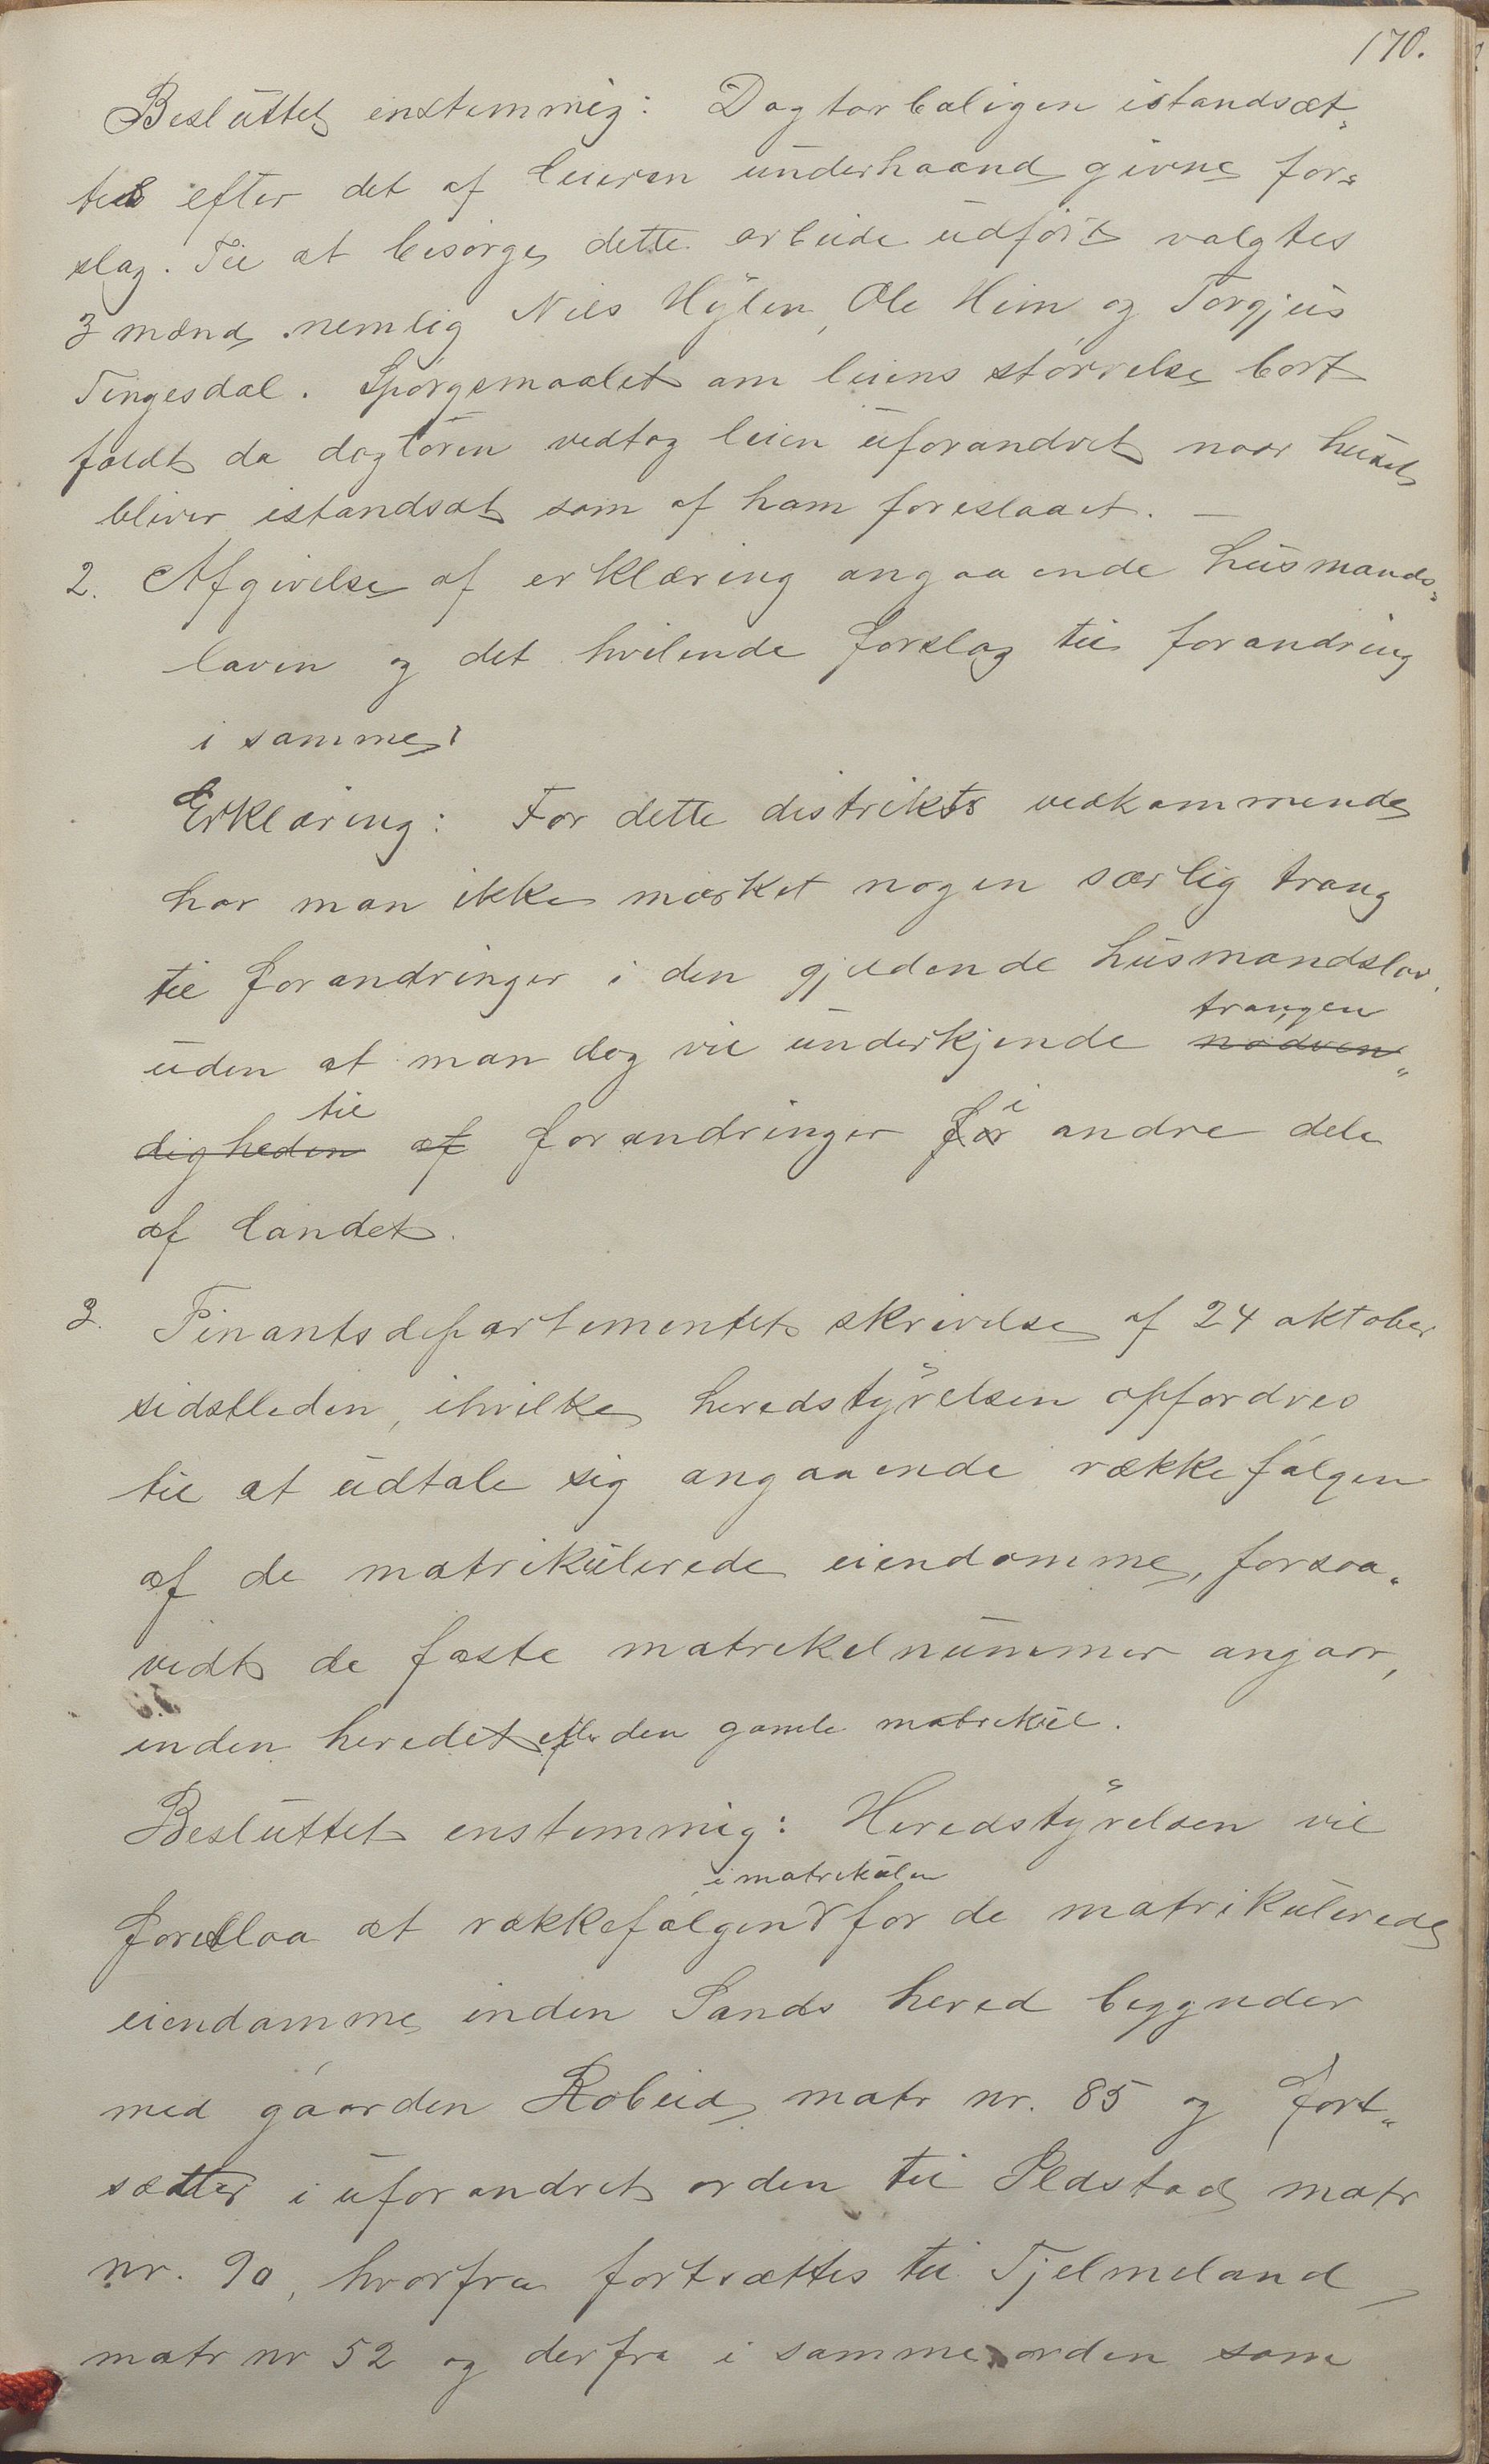 170.
Besluttet enstemmig: Dogtorboligen istandsæt-
tes efter det af leieren underhaand givne for-
slag. Til at besørge dette arbeide udført valgtes
3 mænd nemlig Nils Hylen, Ole Heim og Torgjus
Tengesdal. Spørgsmaalet om leiens størrelse bort
faldt da dogtoren vedtog leien uforandret naar huset
bliver istandsat som af ham foreslaaet. —
2. Afgivelse af erklæring angaaende husmands-
loven og det hvilende forslag til forandring
i samme:
Erklæring: For dette distrikts vedkommende
har man ikke mærket nogen særlig trang
til forandringer i den gjeldende husmandslov,
trangen
uden at man dog vil underkjende nødven-
til i
digheden af forandringer for andre dele
af landet.
3. Finantsdepartementets skrivelse af 24 oktober
sidstleden, ihvilke heredstyrelsen opfordres
til at udtale sig angaaende rækkefølgen
af de matrikulerede eiendomme, forsaa-
vidt de faste matrikelnummer angaar,
inden heredet efter den gamle matrikul.
Besluttet enstemmig: Heredstyrelsen vil
i matrikulen
foreslaa at rækkefølgen for de matrikulerede
eiendomme inden Sands hered begynder
med gaarden Røbeid matr nr. 85 og fort-
sætter i uforandret orden til Sldstad matr
nr. 90, hvorfra fortsættes til Tjelmeland
matr nr 52 og derfra i samme orden som